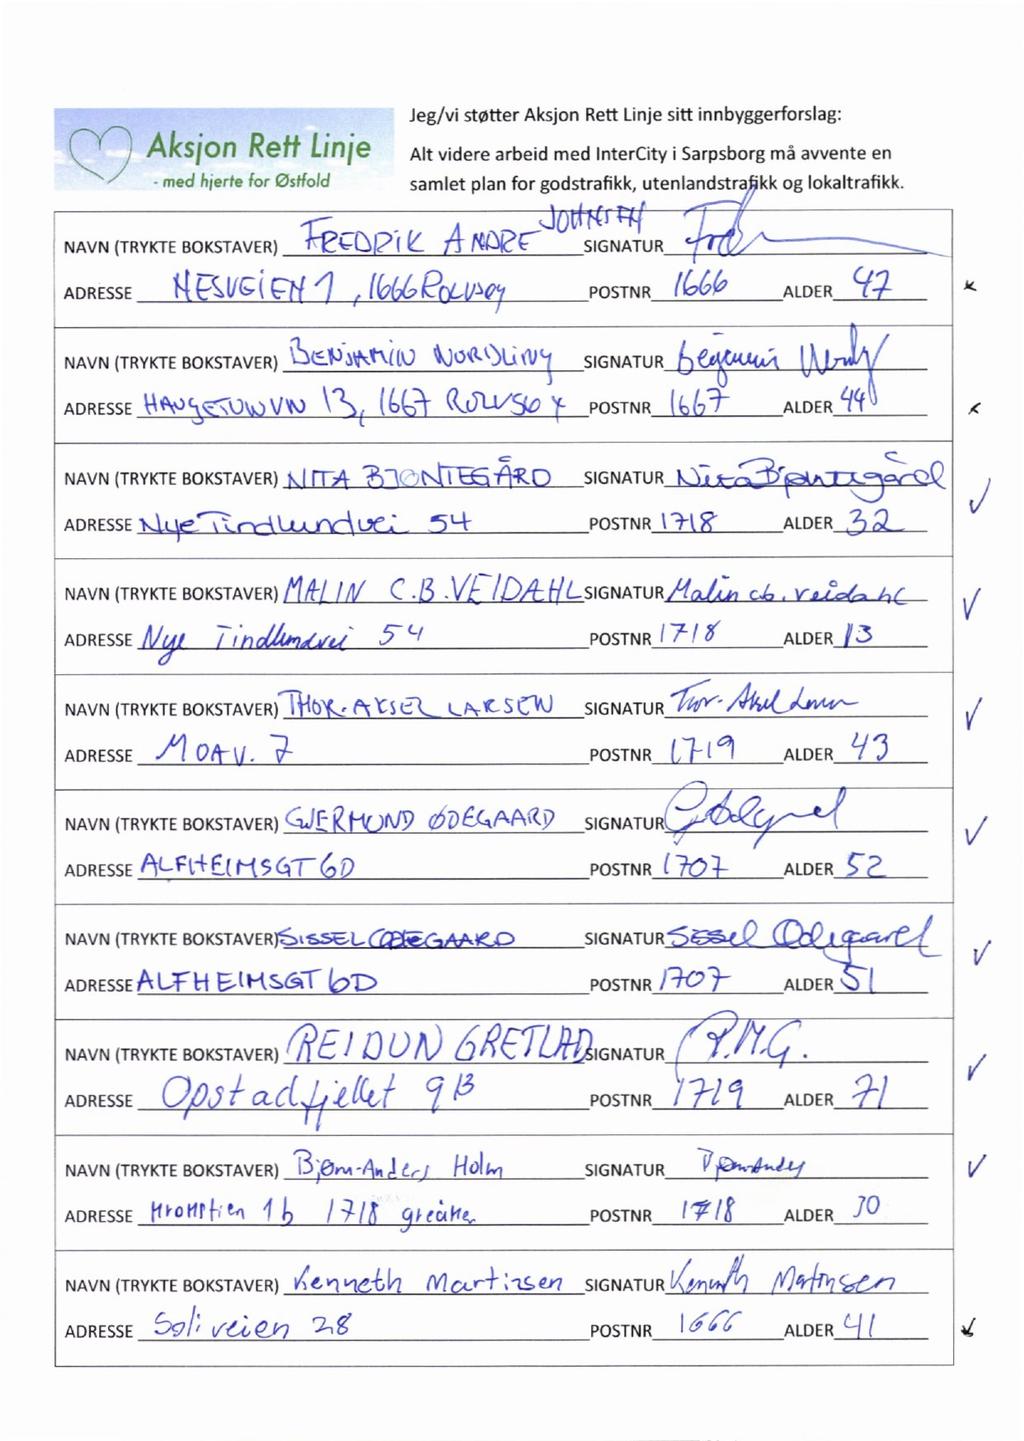 Aksjon Rett Linje
- med hjerte for Østfold
Jeg/vi støtter Aksjon Rett Linje sitt innbyggerforslag:
Alt videre arbeid med InterCity i Sarpsborg må avvente en
samlet plan for godstrafikk, utenlandstrafikk og lokaltrafikk.
NAVN (TRYKTE BOKSTAVER) FREDRIK ANDRE JOHNSEN SIGNATUR
ADRESSE NESVEIEN 1, 1666 Rolvsøy POSTNR 1666 ALDER 47
NAVN (TRYKTE BOKSTAVER) BENJAMIN NORDLING SIGNATUR Benjamin
ADRESSE 13, 1667 ROLVSØY POSTNR 1667 ALDER 44
NAVN (TRYKTE BOKSTAVER) NITA BJØNTEGÅRD SIGNATUR Nita Bjøntegård
ADRESSE Nye Tindlundvei 54 POSTNR 1718 ALDER 32
NAVN (TRYKTE BOKSTAVER) MALIN C.B. VEIDAHL SIGNATUR Malin c.b. veidahl
ADRESSE Nye Tindlundvei 54 POSTNR 1718 ALDER 13
NAVN (TRYKTE BOKSTAVER) THOR-AKSEL LARSEN SIGNATUR Thor-Aksel Larsen
ADRESSE MOAV. 7 POSTNR 1719 ALDER 43
NAVN (TRYKTE BOKSTAVER) GJERMUND ØDEGAARD SIGNATUR
ADRESSE ALFHEIMSGT 6D POSTNR 1707 ALDER 52
NAVN (TRYKTE BOKSTAVER) SISSEL ØDEGAARD SIGNATUR Sissel Ødegaard
ADRESSE ALFHEIMSGT 6D POSTNR 1707 ALDER 51
NAVN (TRYKTE BOKSTAVER) REIDUN GRETLAND SIGNATUR R.M.G.
ADRESSE Opstadfjellet 9B POSTNR 1719 ALDER 71
NAVN (TRYKTE BOKSTAVER) Bjørn-Anders Holm SIGNATUR
ADRESSE 1b 1718 greåker POSTNR 1718 ALDER 30
NAVN (TRYKTE BOKSTAVER) Kenneth Martinsen SIGNATUR Kenneth Martinsen
ADRESSE Soliveien 28 POSTNR 1666 ALDER 41